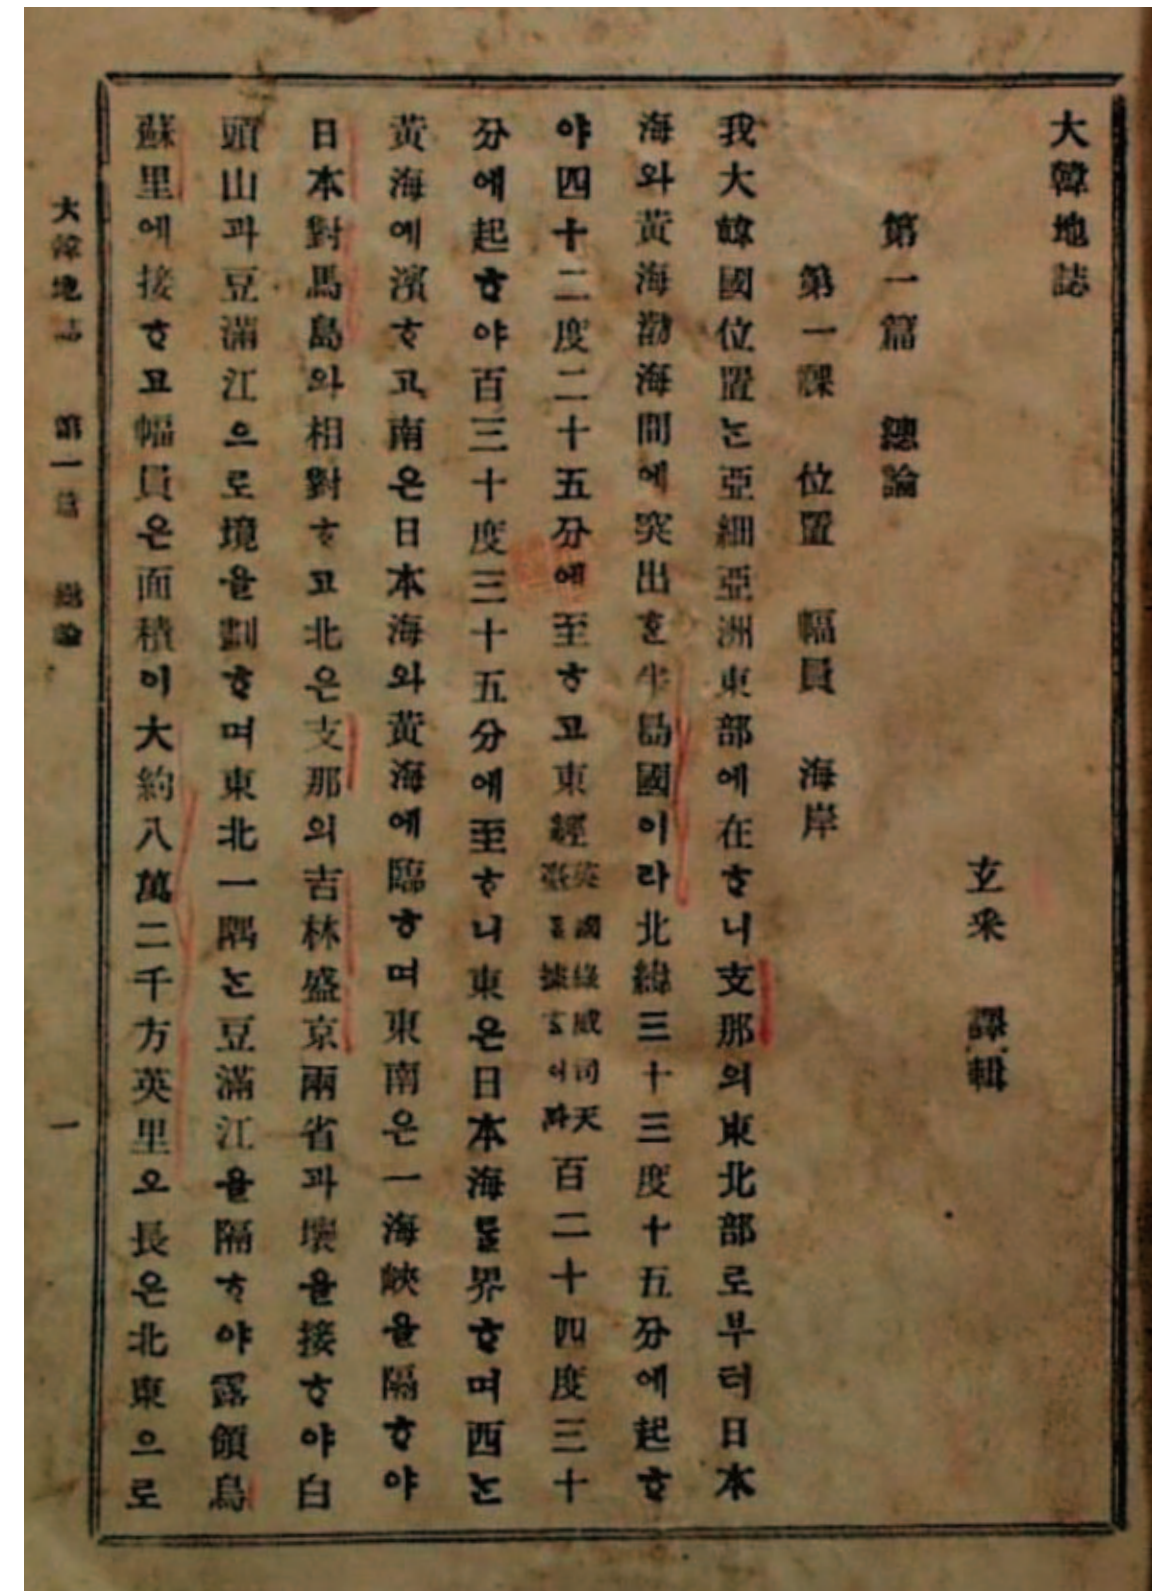 大韓地誌
玄采 譯輯
第一篇 總論
第一課 位置 幅員 海岸
我大韓國位置ᄂᆞᆫ亞細亞洲東部에在ᄒᆞ니支那의東北部로부터日本
海와黃海渤海間에突出ᄒᆞᆫ半島國이라北緯三十三度十五分에起ᄒᆞ
야四十二度二十五分에至ᄒᆞ고東經英國綠威司天臺를據言이라百二十四度三十
分에起ᄒᆞ야百三十度三十五分에至ᄒᆞ니東은日本海를界ᄒᆞ며西ᄂᆞᆫ
黃海에濱ᄒᆞ고南은日本海와黃海에臨ᄒᆞ며東南은一海峽을隔ᄒᆞ야
日本對馬島와相對ᄒᆞ고北은支那의吉林盛京兩省과壤을接ᄒᆞ야白
頭山과豆滿江으로境을劃ᄒᆞ며東北一隅ᄂᆞᆫ豆滿江을隔ᄒᆞ야露領烏
蘇里에接ᄒᆞ고幅員은面積이大約八萬二千方英里오長은北東으로
大韓地誌 第一篇 總論 一